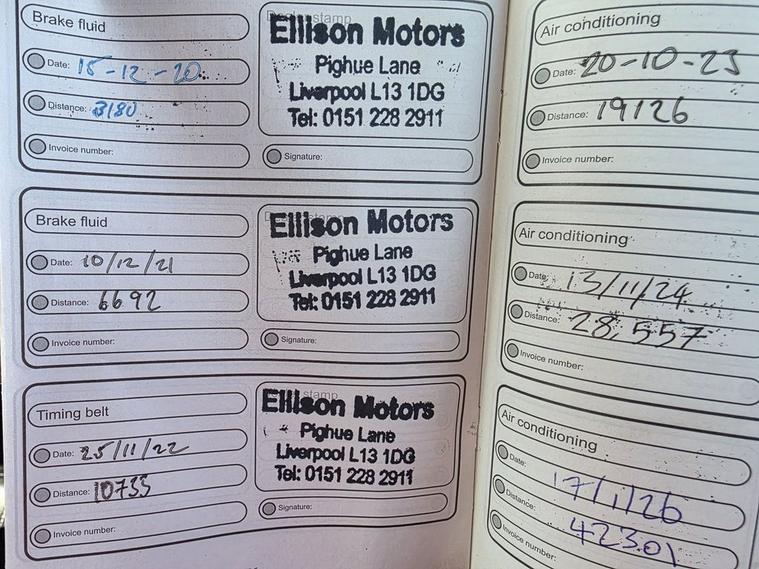 Brake fluid
Date: 15-12-20
Distance: 3180
Invoice number:
Ellison Motors
Pighue Lane
Liverpool L13 1DG
Tel: 0151 228 2911
Signature:
Brake fluid
Date: 10/12/21
Distance: 6692
Invoice number:
Ellison Motors
Pighue Lane
Liverpool L13 1DG
Tel: 0151 228 2911
Signature:
Timing belt
Date: 25/11/22
Distance: 10733
Invoice number:
stamp
Ellison Motors
Pighue Lane
Liverpool L13 1DG
Tel: 0151 228 2911
Signature:
Air conditioning
Date: 20-10-23
Distance: 19126
Invoice number:
Air conditioning
Date: 13/11/24
Distance: 28,557
Invoice number:
Air conditioning
Date: 17/1/26
Distance: 42301
Invoice number: